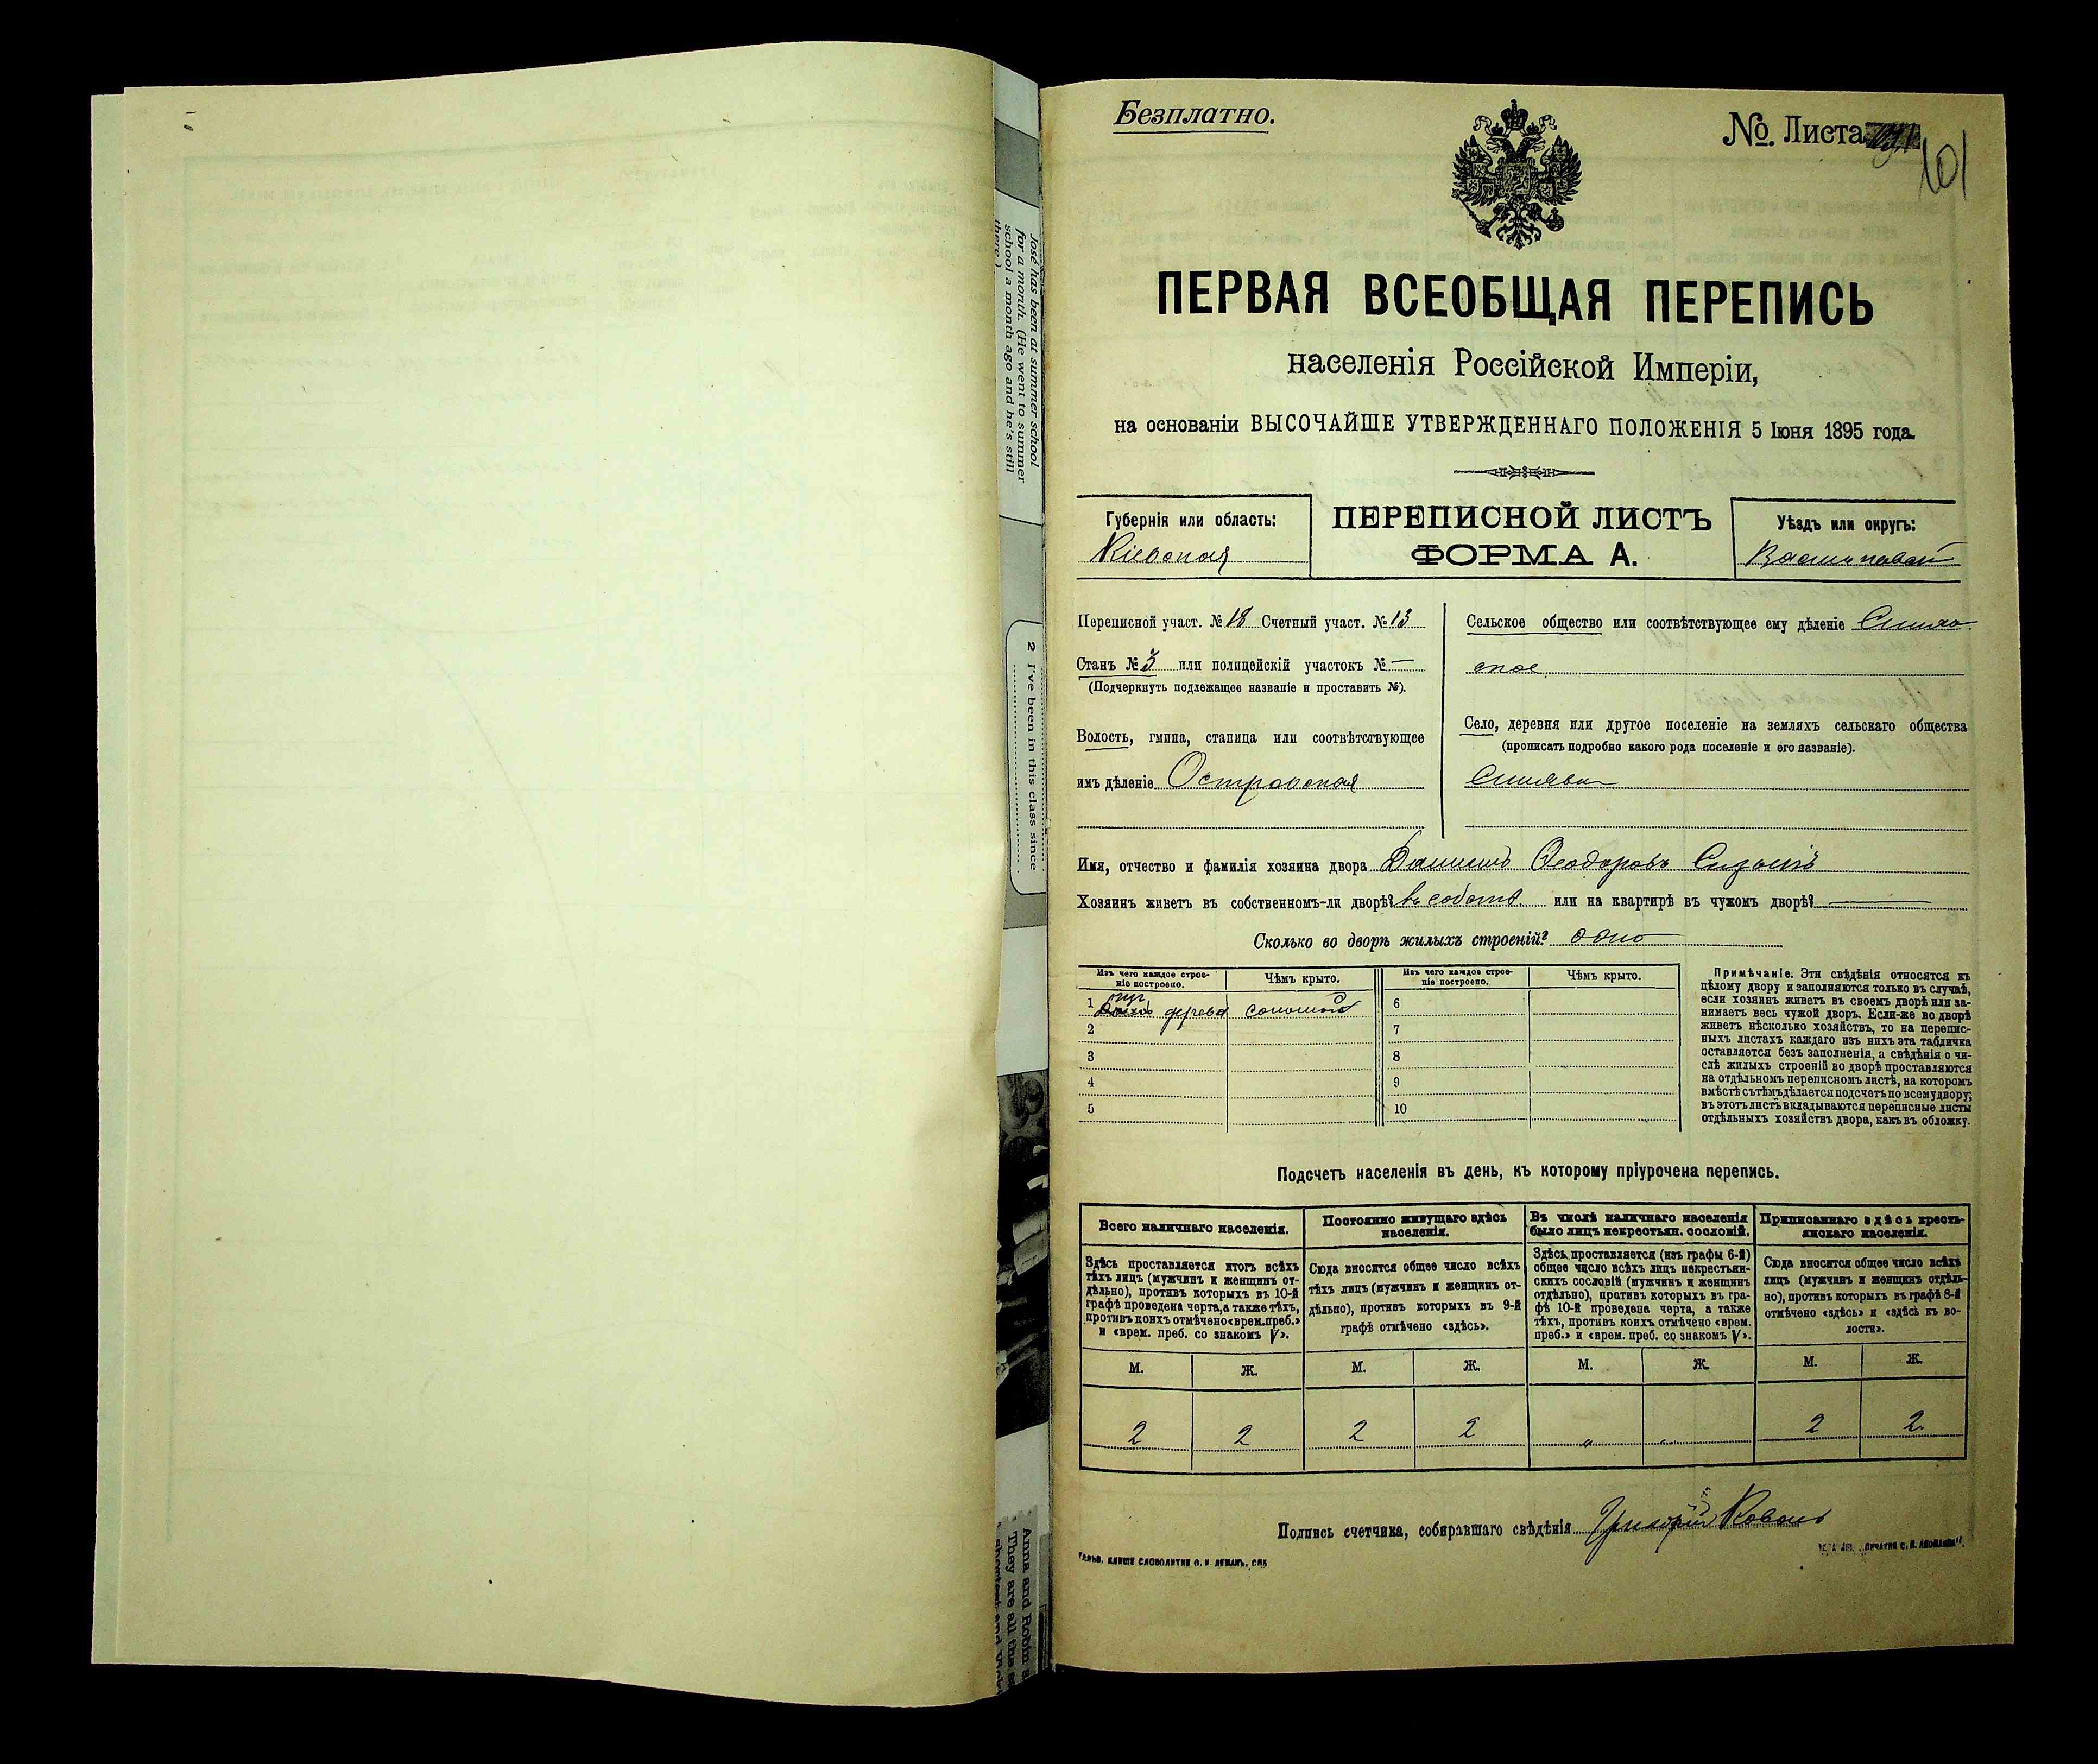 José has been at summer school
for a month. (He went to summer
school a month ago and he's still
there.)
2 I've been in this class since
Anna and Robin a
They are all the sa
Безплатно.
№. Листа
101
ПЕРВАЯ ВСЕОБЩАЯ ПЕРЕПИСЬ
населенія Россійской Имперіи,
на основаніи ВЫСОЧАЙШЕ УТВЕРЖДЕННАГО ПОЛОЖЕНІЯ 5 Іюня 1895 года.
Губернія или область:
Кіевская
ПЕРЕПИСНОЙ ЛИСТЪ
ФОРМА А.
Уѣздъ или округъ:
Переписной участ. № 18 Счетный участ. № 13
Станъ № 3 или полицейскій участокъ № —
(Подчеркнуть подлежащее названіе и проставить №).
Волость, гмина, станица или соотвѣтствующее
имъ дѣленіе Островская
Сельское общество или соотвѣтствующее ему дѣленіе Синяв
ское
Село, деревня или другое поселеніе на земляхъ сельскаго общества
(прописать подробно какого рода поселеніе и его названіе).
Синява
Имя, отчество и фамилія хозяина двора Даниилъ Ѳеодоровъ
Хозяинъ живетъ въ собственномъ-ли дворѣ? въ собств или на квартирѣ въ чужомъ дворѣ? —
Сколько во дворѣ жилыхъ строеній? одно
Изъ чего каждое строе-
ніе построено.
Чѣмъ крыто.
Изъ чего каждое строе-
ніе построено.
Чѣмъ крыто.
1 дерева соломой 6
2 7
3 8
4 9
5 10
Примѣчаніе. Эти свѣдѣнія относятся къ
цѣлому двору и заполняются только въ случаѣ,
если хозяинъ живетъ въ своемъ дворѣ или за-
нимаетъ весь чужой дворъ. Если-же во дворѣ
живетъ нѣсколько хозяйствъ, то на перепис-
ныхъ листахъ каждаго изъ нихъ эта табличка
оставляется безъ заполненія, а свѣдѣнія о чи-
слѣ жилыхъ строеній во дворѣ проставляются
на отдѣльномъ переписномъ листѣ, на которомъ
вмѣстѣ съ тѣмъ дѣлается подсчетъ по всему двору;
въ этотъ листъ вкладываются переписные листы
отдѣльныхъ хозяйствъ двора, какъ въ обложку.
Подсчетъ населенія въ день, къ которому пріурочена перепись.
Всего наличнаго населенія.
Здѣсь проставляется итогъ всѣхъ
тѣхъ лицъ (мужчинъ и женщинъ от-
дѣльно), противъ которыхъ въ 10-й
графѣ проведена черта, а также тѣхъ,
противъ коихъ отмѣчено «врем. преб.»
и «врем. преб. со знакомъ V».
Постоянно живущаго здѣсь
населенія.
Сюда вносится общее число всѣхъ
тѣхъ лицъ (мужчинъ и женщинъ от-
дѣльно), противъ которыхъ въ 9-й
графѣ отмѣчено «здѣсь».
Въ числѣ наличнаго населенія
было лицъ некрестьян. сословій.
Здѣсь проставляется (изъ графы 6-й)
общее число всѣхъ лицъ некрестьян-
скихъ сословій (мужчинъ и женщинъ
отдѣльно), противъ которыхъ въ гра-
фѣ 10-й проведена черта, а также
тѣхъ, противъ коихъ отмѣчено «врем.
преб.» и «врем. преб. со знакомъ V».
Приписаннаго здѣсь кресть-
янскаго населенія.
Сюда вносится общее число всѣхъ
лицъ (мужчинъ и женщинъ отдѣль-
но), противъ которыхъ въ графѣ 8-й
отмѣчено «здѣсь» и «здѣсь къ во-
лости».
М. Ж. М. Ж. М. Ж. М. Ж.
2 2 2 2 „ „ 2 2
Подпись счетчика, собиравшаго свѣдѣнія Григорій Коваль